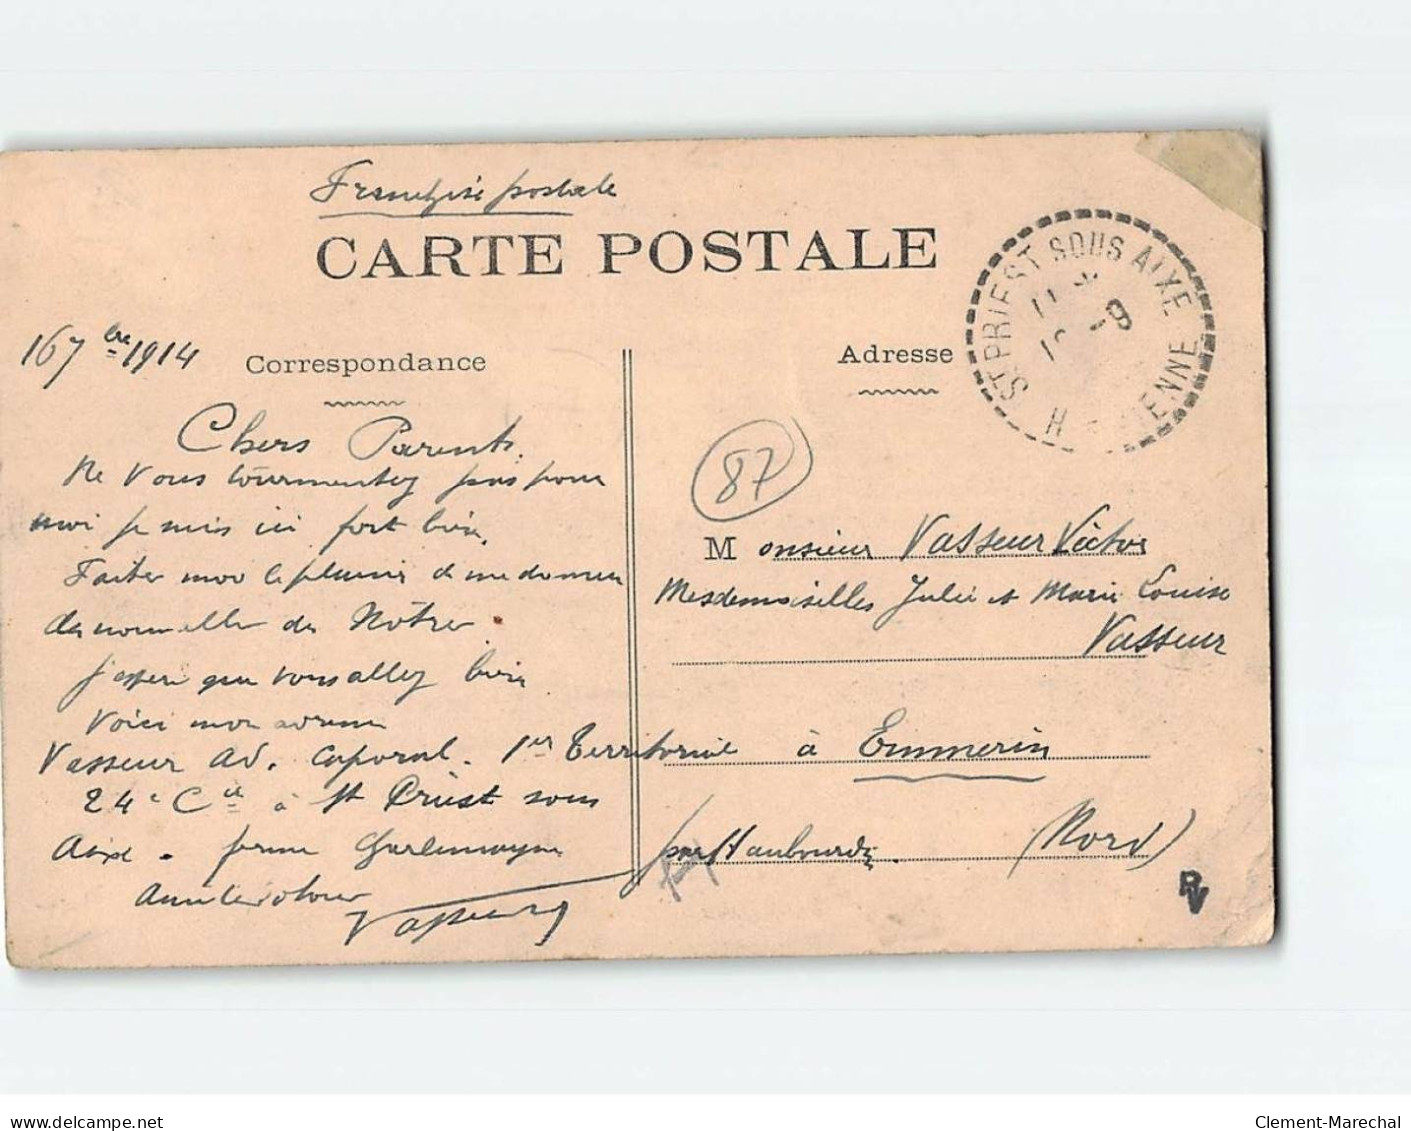 Franchise postale
CARTE POSTALE
ST PRIEST SOUS AIXE
11
-9
H VIENNE
16 7bre 1914
Correspondance
Adresse
Chers Parents.
Ne vous tourmentez pas pour
moi je suis ici fort bien.
Faites moi le plaisir de me donner
des nouvelles des Nôtres.
J'espère que vous allez bien
Voici mon adresse
Vasseur Ad. Caporal. 1er Territorial
24e Cie à St Priest sous
Aixe. ferme
Vasseur
87
Monsieur Vasseur Victor
Mesdemoiselles Julie et Marie Louise
Vasseur
à Emmerin
par Haubourdin. (Nord)
PV
www.delcampe.net
Clement-Marechal